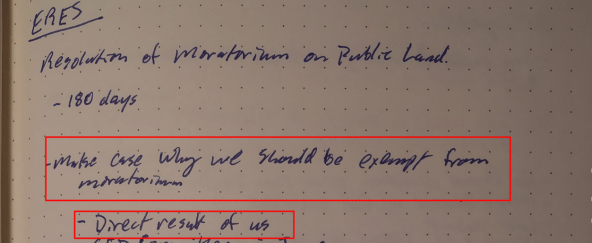 ERES
Resolution of moratorium on Public Land.
- 180 days
- Make case why we should be exempt from
moratorium
- Direct result of us